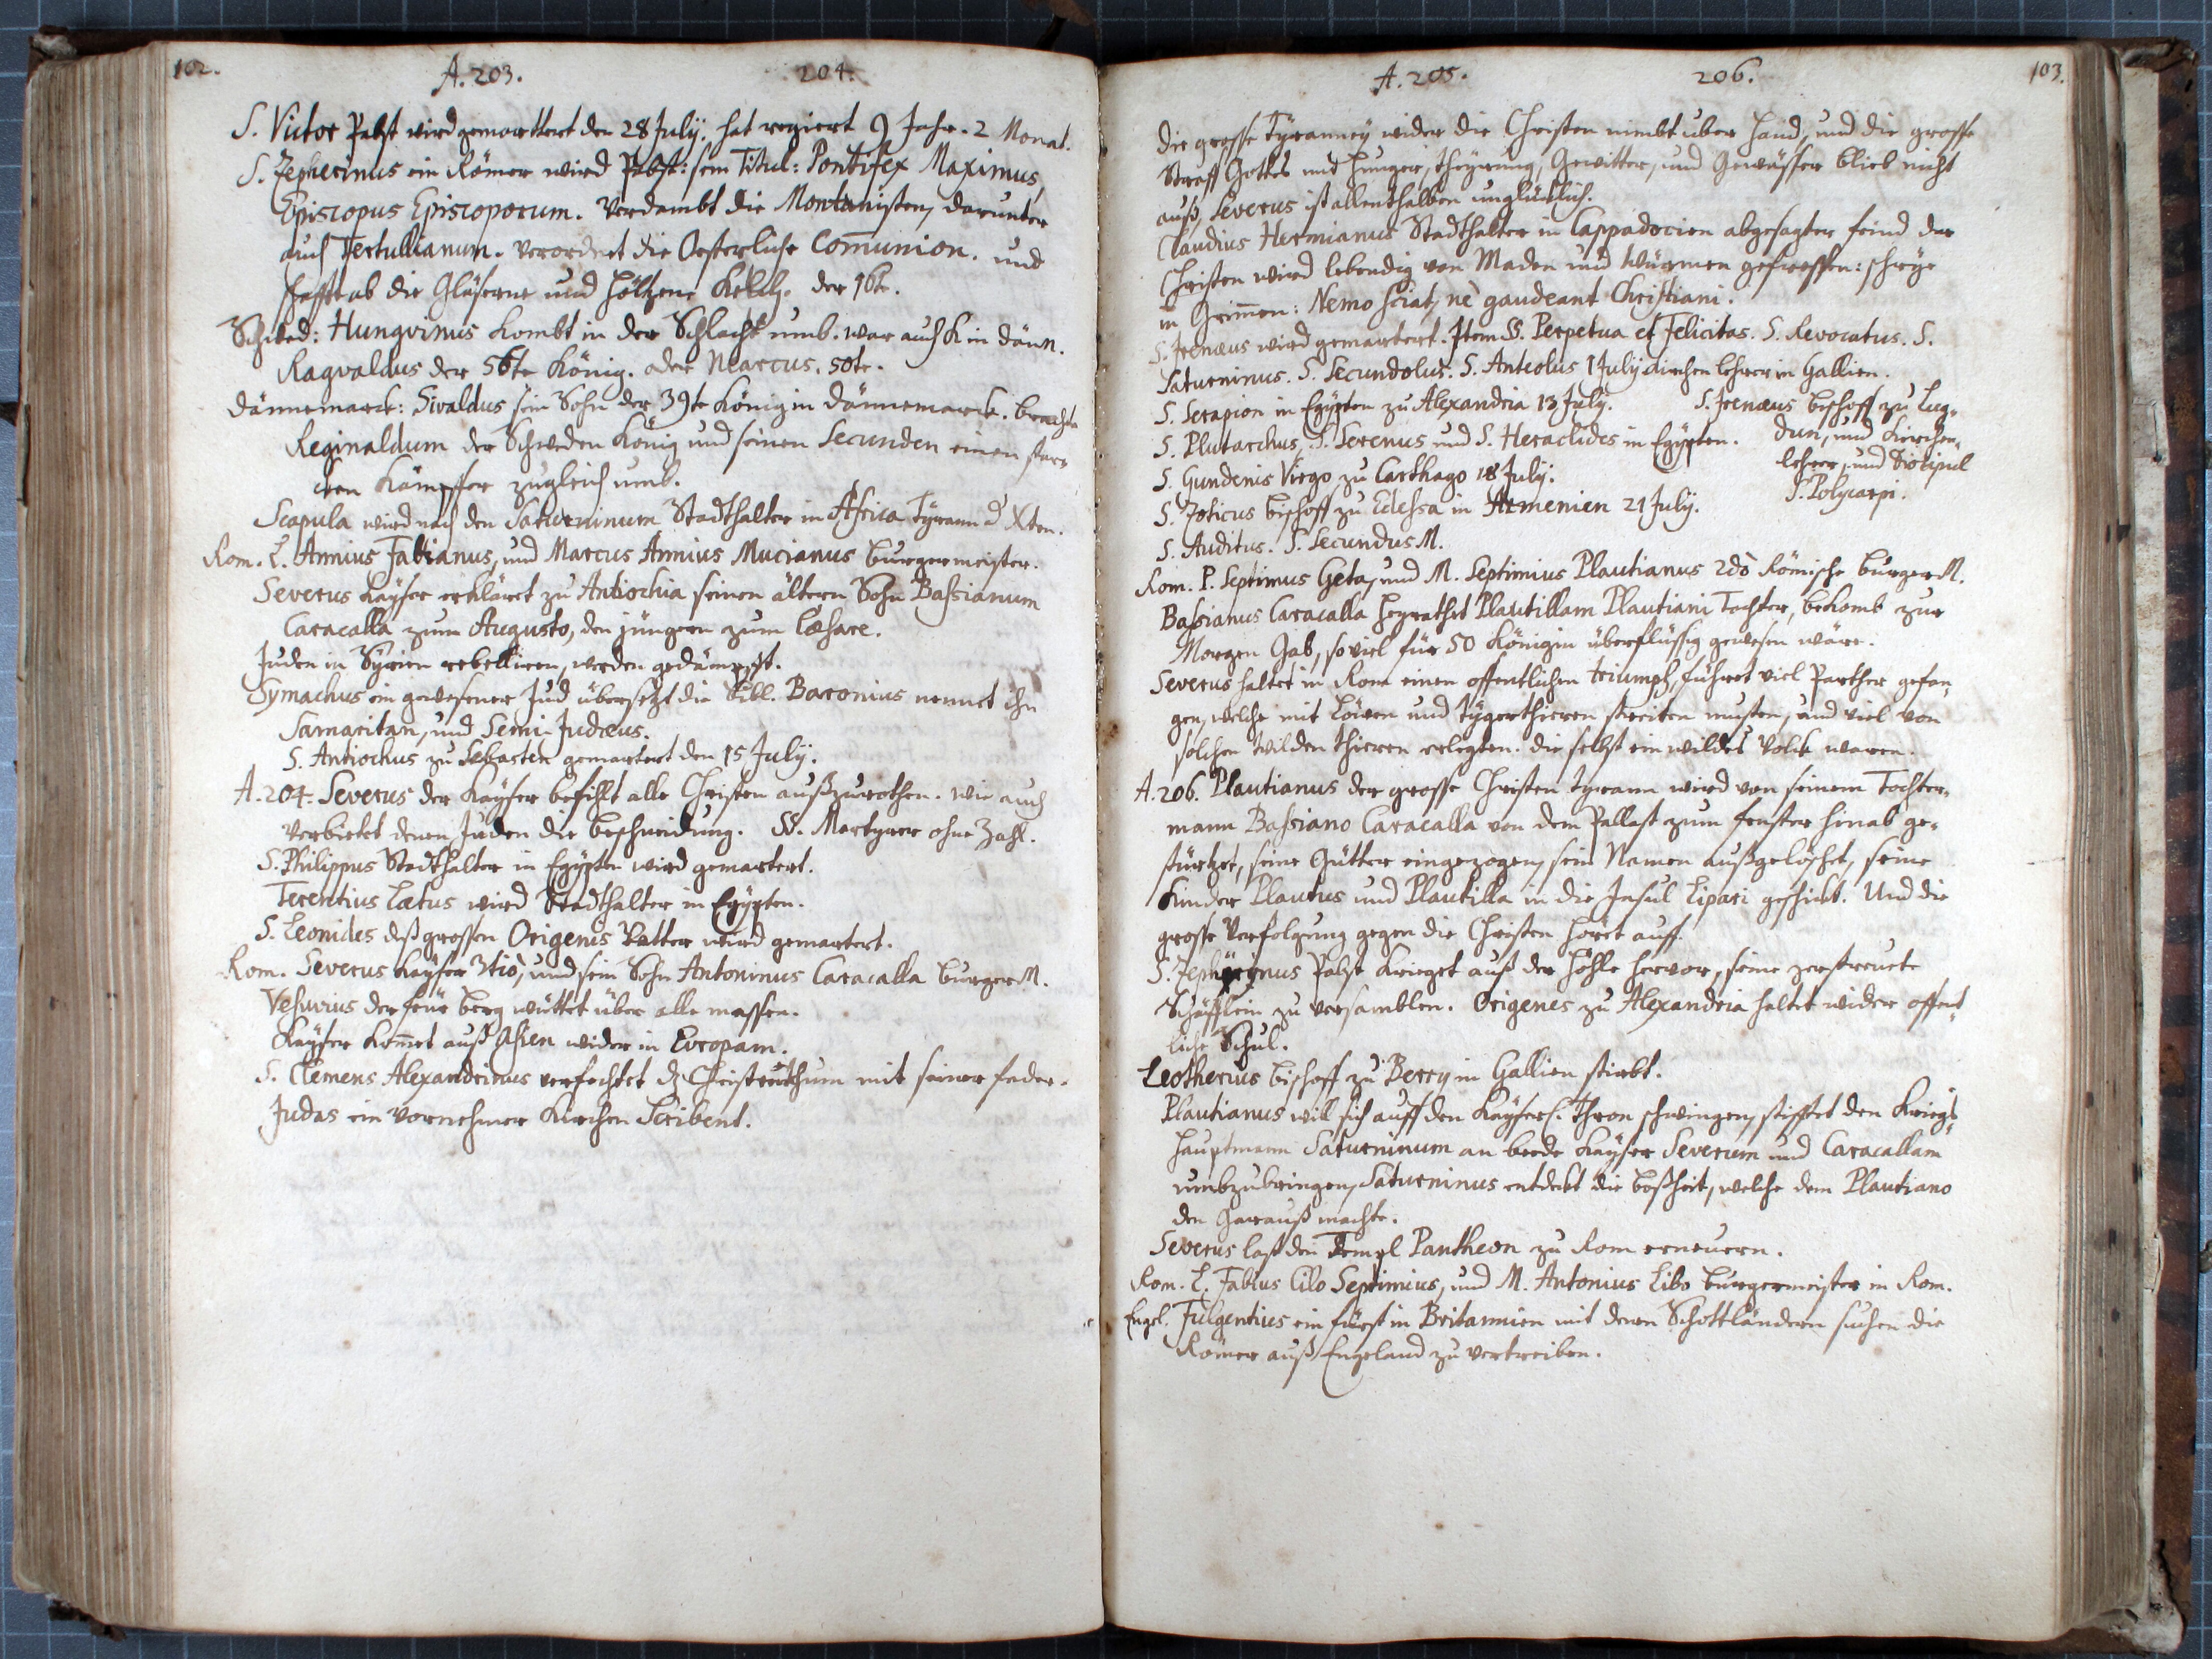 102.
A. 203.
204.
S. Victor Pabst wird gemarttert den 28 July. hat regiert 9 Jahr. 2 Monat.
S. Zepherinus ein Römer wird Pabst: sein Titul: Pontifex Maximus,
Episcopus Episcoporum. Verdambt die Montanisten, darunter
auch Tertullianum. Verordnet die Oesterliche Com̄union. und
schafft ab die Gläserne und höltzene Kelch. der 16te.
Schwed: Hunqvinus kombt in der Schlacht umb. war auch K. in Dänn.
Ragvaldus der 56te König. oder Nearcus. 50te.
Dännemarck: Sivaldus sein Sohn der 39te König in Dännemarck. brachte
Reginaldum der Schweden König und seinen Secunden einen star-
cken Kämpffer zugleich umb.
Scapula wird nach den Saturninum Stadthalter in Africa Tyrann d' Xten.
Rom. L. Annius Fabianus, und Marcus Annius Mucianus burgermeister.
Severus Kayser erkläret zu Antiochia seinen ältern Sohn Bassianum
Caracalla zum Augusto, den jüngern zum Cæsare.
Juden in Syrien rebelliren, werden gedämpfft.
Symachus ein gewesener Jud übersetzt die Bibl. Baronius nennet ihn
Samaritan, und Semi-Judæus.
S. Antiochus zu Sebasten gemartert den 15 July.
A. 204. Severus der Kayser befihlt alle Christen außzurothen. wie auch
verbietet denen Juden die beschneidung. SS. Martyrer ohne Zahl.
S. Philippus Stadthalter in Egypten wird gemartert.
Terentius Lætus wird Stadthalter in Egypten.
S. Leonides deß grossen Origenis Vatter wird gemartert.
Rom. Severus Kayser 3tiò, und sein Sohn Antoninus Caracalla burger M.
Vesuvius der feür berg wüttet über alle massen.
Kayser kom̄et auß Asien wider in Evropam.
S. Clemens Alexandrinus verfechtet dz Christenthum mit seiner feder.
Judas ein vornehmer Kirchen Scribent.
A. 205.
206.
103.
Die grosse Tyranney wider die Christen nimbt uber hand, und die grosse
Straff Gottes mit hunger, theyrung, Gewitter, und Gewässer blieb nicht
auß, Severus ist allenthalben unglücklich.
Claudius Hermianus Stadthalter in Cappadocien abgesagter feind der
Christen wird lebendig von Maden und Würmen gefressen: schrye
in Grim̄en: Nemo sciat, nè gaudeant Christiani.
S. Irenæus wird gemartert. Item SS. Perpetua et Felicitas. S. Revocatus. S.
Saturninus. S. Secundolus. S. Anteolus 1 July Kirchen lehrer in Gallien.
S. Serapion in Egypten zu Alexandria 13 July.
S. Plutarchus, S. Serenus und S. Heraclides in Egypten.
S. Gundenis Virgo zu Carthago 18 July.
S. Zoticus bischoff zu Edessa in Armenien 21 July.
S. Auditus. S. Secundus M.
S. Irenæus bischoff zu Lug-
dun, und Kirchen-
lehrer, und Discipul
S. Polycarpi.
Rom. P. Septimus Geta, und M. Septimius Plautianus 2dò Römische burger M.
Bassianus Caracalla heyrathet Plautillam Plautiani Tochter, bekomt zur
Morgen Gab, so viel für 50 Königin überflüssig gewesen wäre.
Severus haltet in Rom einen offentlichen triumph, führet viel Parther gefan-
gen, welche mit Löwen und Tygerthieren streiten musten, und viel von
solchen wilden thieren erlegten. die selbst ein wildes Volck waren.
A. 206. Plautianus der grosse Christen Tyrann wird von seinem Tochter-
mann Bassiano Caracalla von dem Pallast zum fenster hinab ge-
stürtzet, seine Gütter eingezogen, sein Namen außgelöschet, seine
Kinder Plautus und Plautilla in die Insul Lipari geschickt. Und die
grosse Verfolgung gegen die Christen höret auff.
S. Zephyrinus Pabst krieget auß der höhle hervor, seine zerstreuete
Schäfflein zu versamblen. Origenes zu Alexandria haltet wider offent-
liche Schul.
Leotherius bischoff zu Berry in Gallien stirbt.
Plautianus will sich auff den Kayserl. Thron schwingen, stifftet den Kriegs-
hauptmann Saturninum an beede Kayser Severum und Caracallam
umbzubringen, Saturninus entdeckt die boßheit, welche dem Plautiano
den Garauß machte.
Severus last den Templ Pantheon zu Rom erneuern.
Rom. L. Fabius Cilo Septimius, und M. Antonius Libo burgermeister in Rom.
Engl. Fulgentius ein fürst in Britannien mit denen Schottländern suchen die
Römer auß Engeland zu vertreiben.